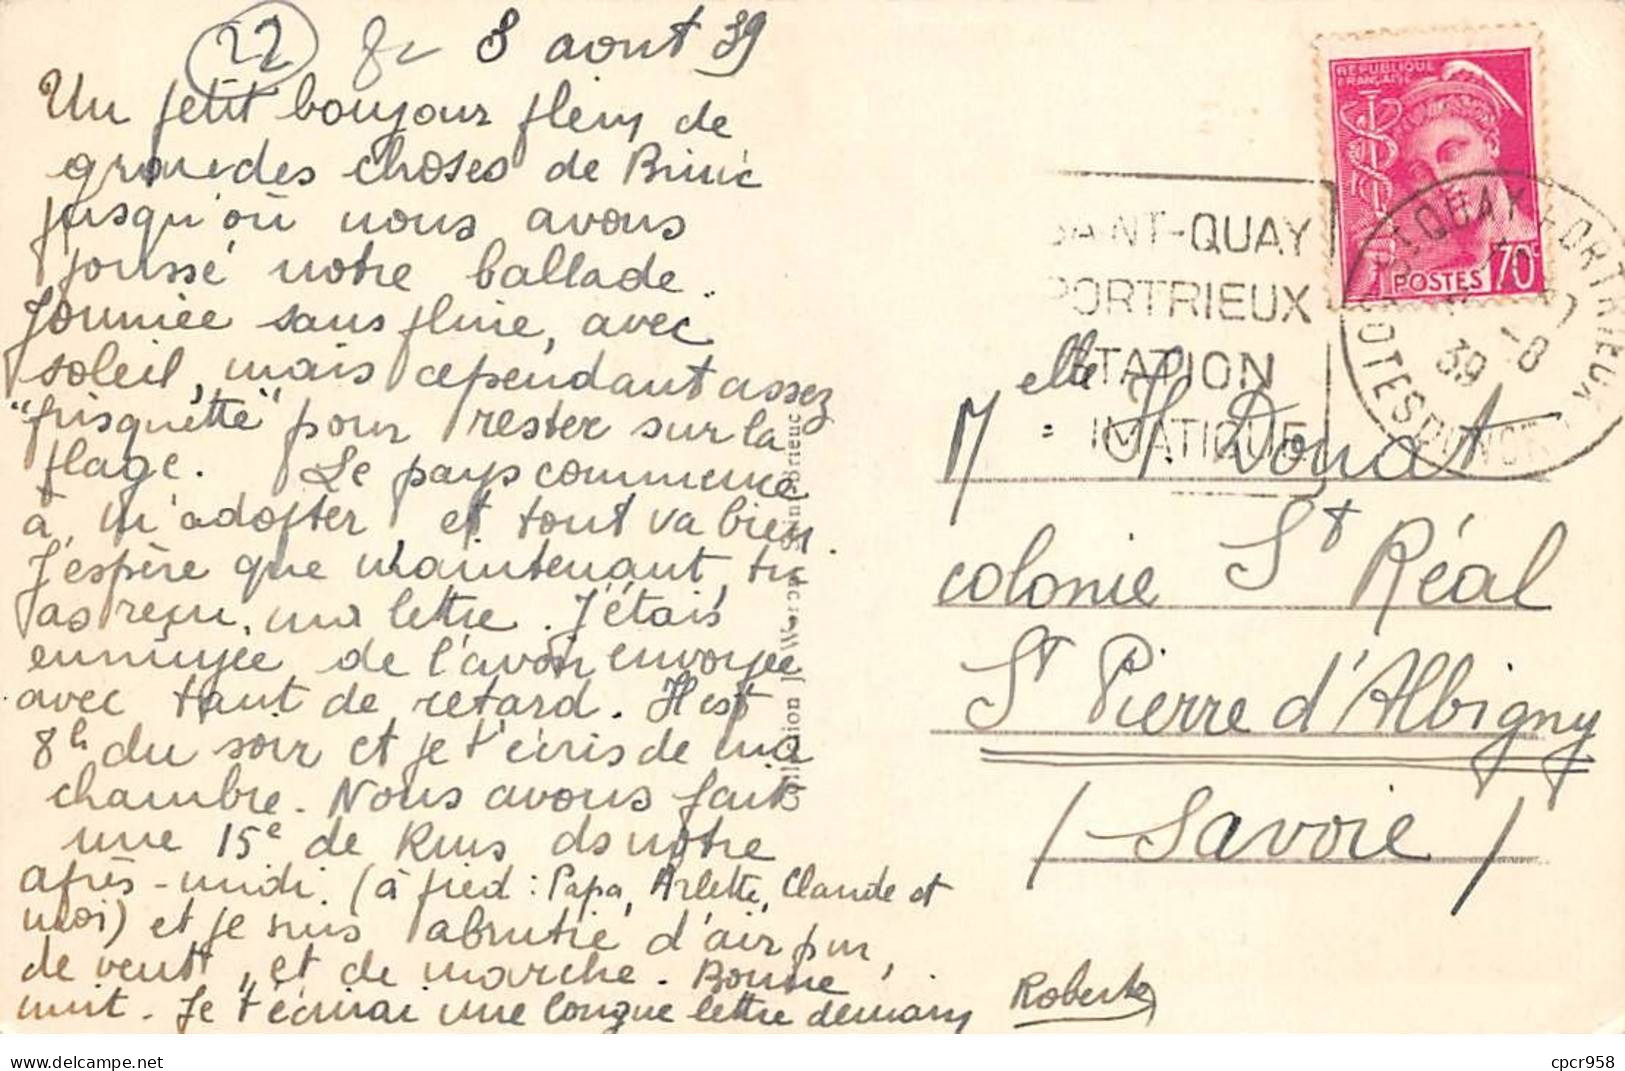 22 8 aout 39
Un petit bonjour plein de
grandes choses de Binic
jusqu'où nous avons
poussé notre ballade.
Journée sans pluie, avec
soleil, mais cependant assez
"frisquette" pour rester sur la
plage. Le pays commence
à m'adopter et tout va bien.
J'espère que maintenant tu
as reçu ma lettre. J'étais
ennuyée de l'avoir envoyée
avec tant de retard. Il est
8h du soir et je t'écris de ma
chambre. Nous avons fait
une 15e de Kms ds notre
après-midi (à pied : Papa, Arlette, Claude et
moi) et je suis abrutie d'air pur,
de vent, et de marche. Bonne
nuit. Je t'écrirai une longue lettre demain
Roberte
RÉPUBLIQUE
FRANÇAISE
POSTES 70c
SAINT-QUAY
PORTRIEUX
STATION
IMATIQUE
ST QUAY PORTRIEUX
COTES DU NORD
39 -8
Melle H. Donat
colonie St Réal
St Pierre d'Albigny
(Savoie)
cpcr958